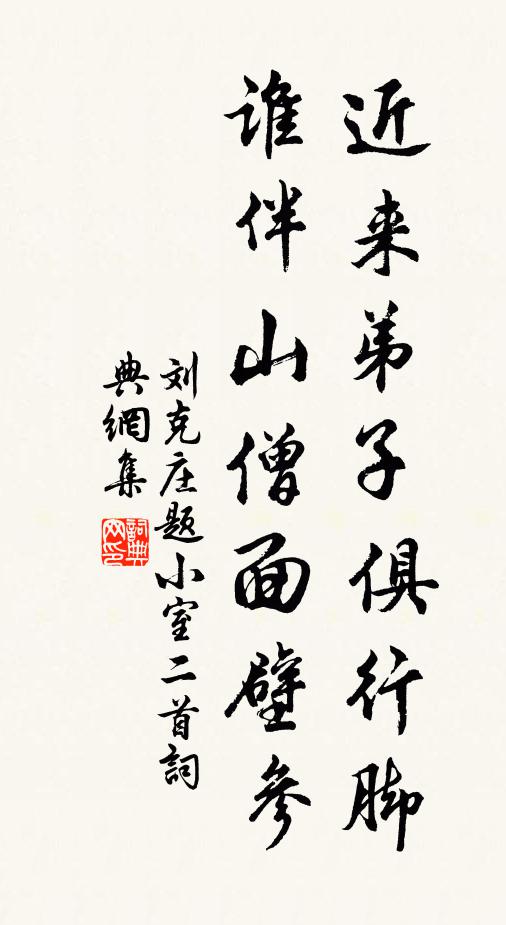 近来弟子俱行脚
谁伴山僧面壁参
刘克庄题小室二首詞
典網集
詞典网印